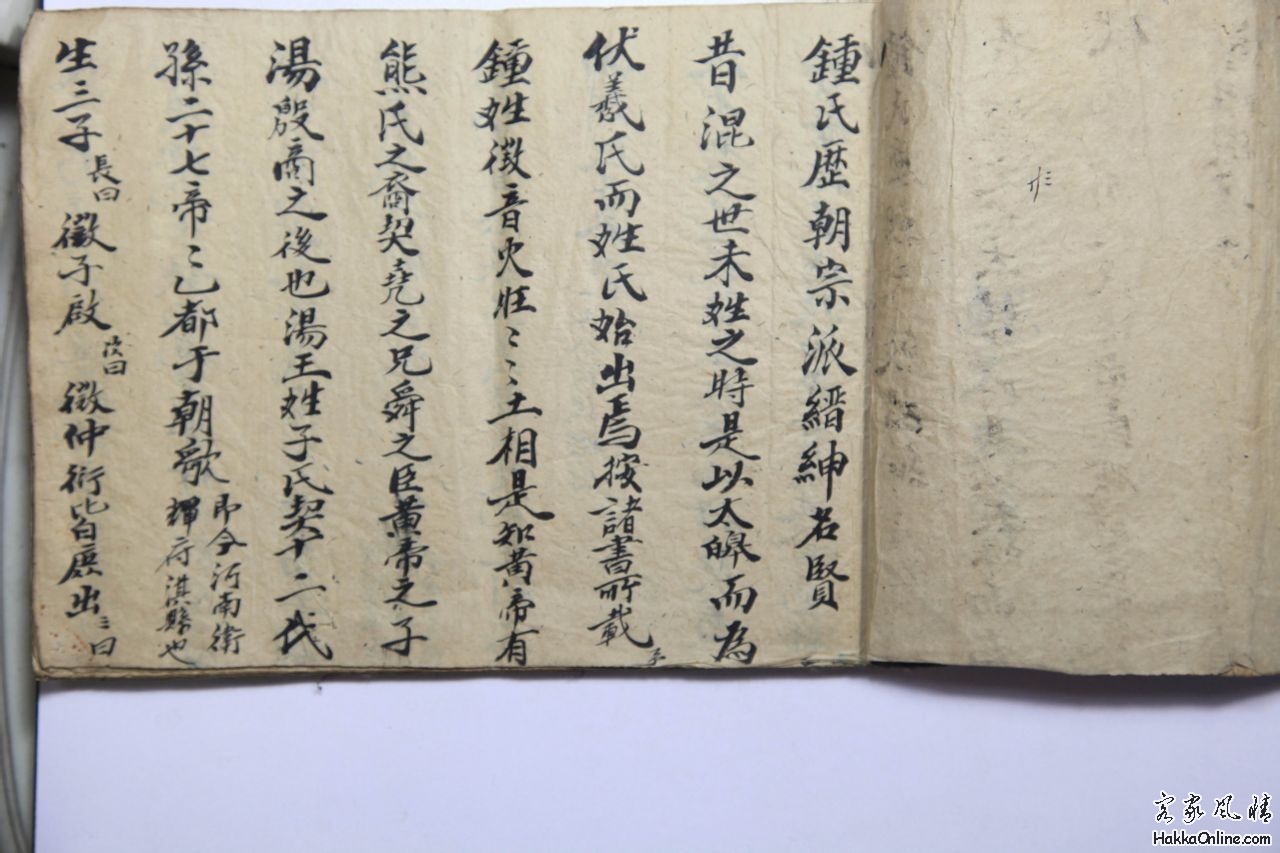 鍾氏歷朝宗派縉紳名賢
昔混之世未姓之時是以太皞而為
伏羲氏而姓氏始出焉按諸書所載
鍾姓徵音火旺〻〻土相是知黃帝有
熊氏之裔契堯之兄舜之臣黃帝之子
湯殷商之後也湯王姓子氏契十二代
孫二十七帝〻乙都于朝歌即今河南衛
輝府淇縣也
生三子長曰徽子啟次曰徵仲衍此皆庶出三曰
客家風情
HakkaOnline.com